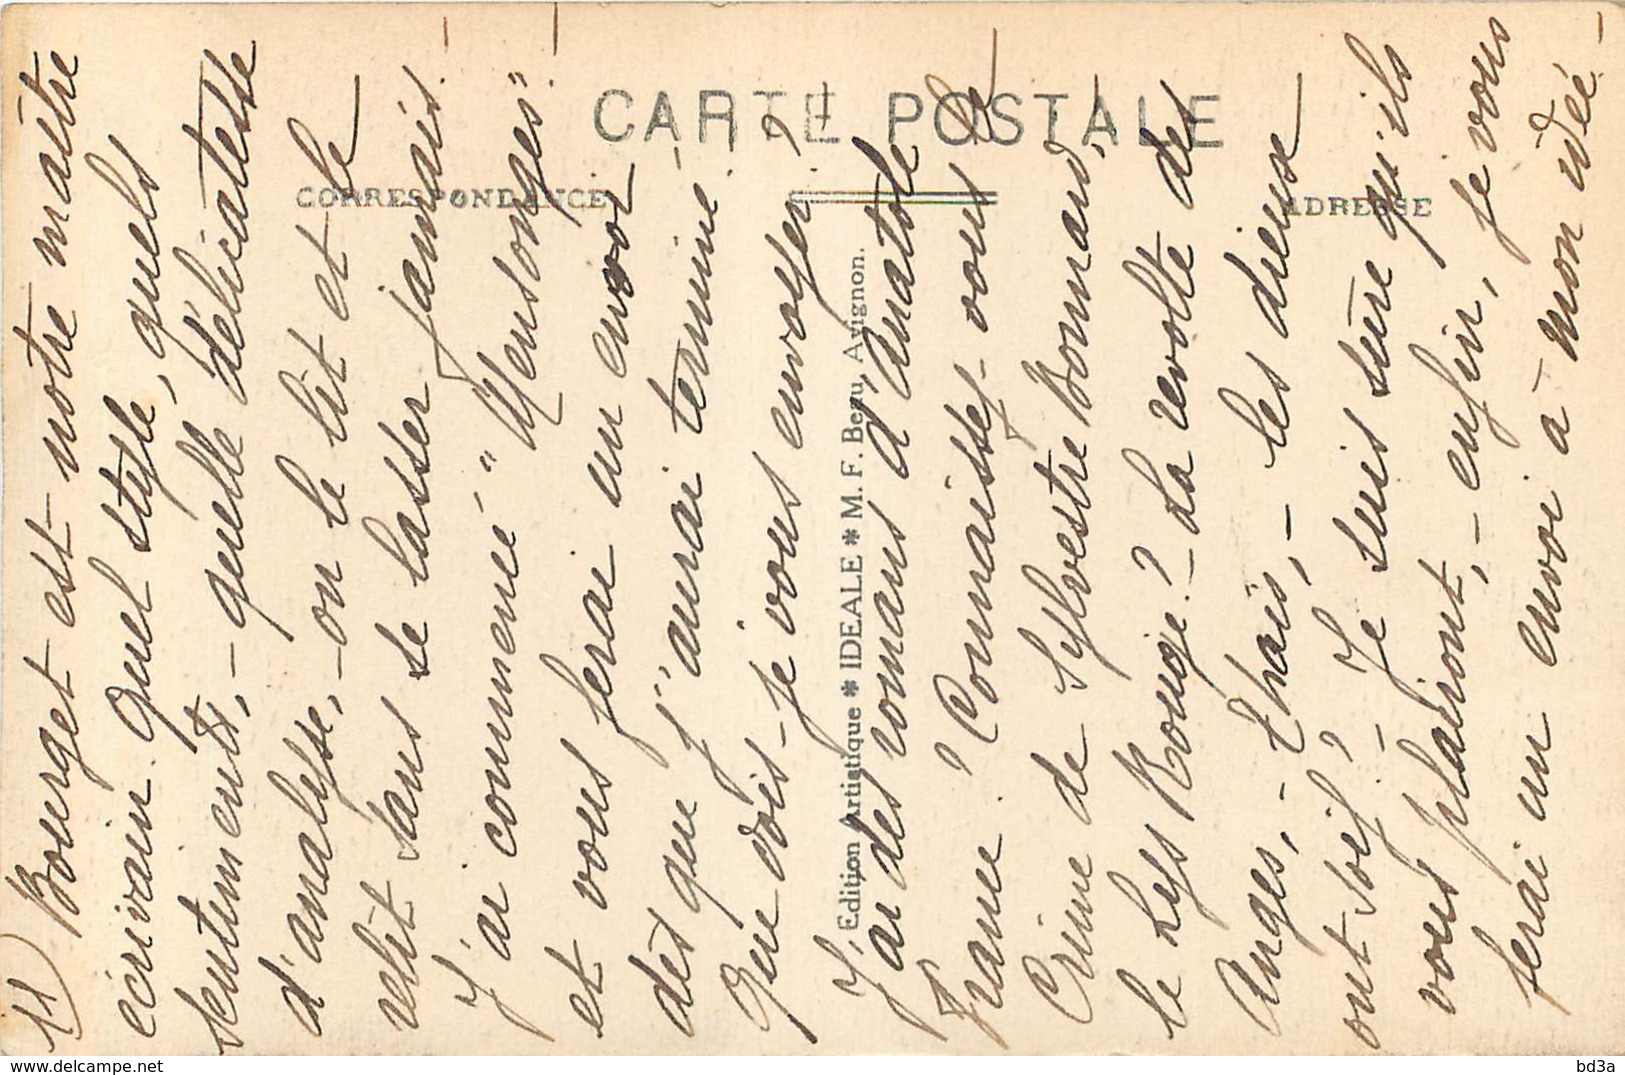 CARTE POSTALE
CORRESPONDANCE
ADRESSE
Edition Artistique * IDEALE * M. F. Beau, Avignon.
11) Bourget est notre maître
écrivain. Quel style, quels
sentiments, - quelle délicatesse
d'analyse, - on le lit et le
relit sans se lasser jamais.
J'ai commencé "Mensonges"
et vous ferai un envoi
dès que j'aurai terminé.
Que dois-je vous envoyer?
J'ai des romans d'Anatole
France? Connaissez-vous le
Crime de Sylvestre Bonnard,
le Lys Rouge? - La révolte des
Anges, - Thaïs, - les dieux
ont soif? - Je suis sûre qu'ils
vous plairont, - enfin, je vous
ferai un envoi à mon idée -
bd3a